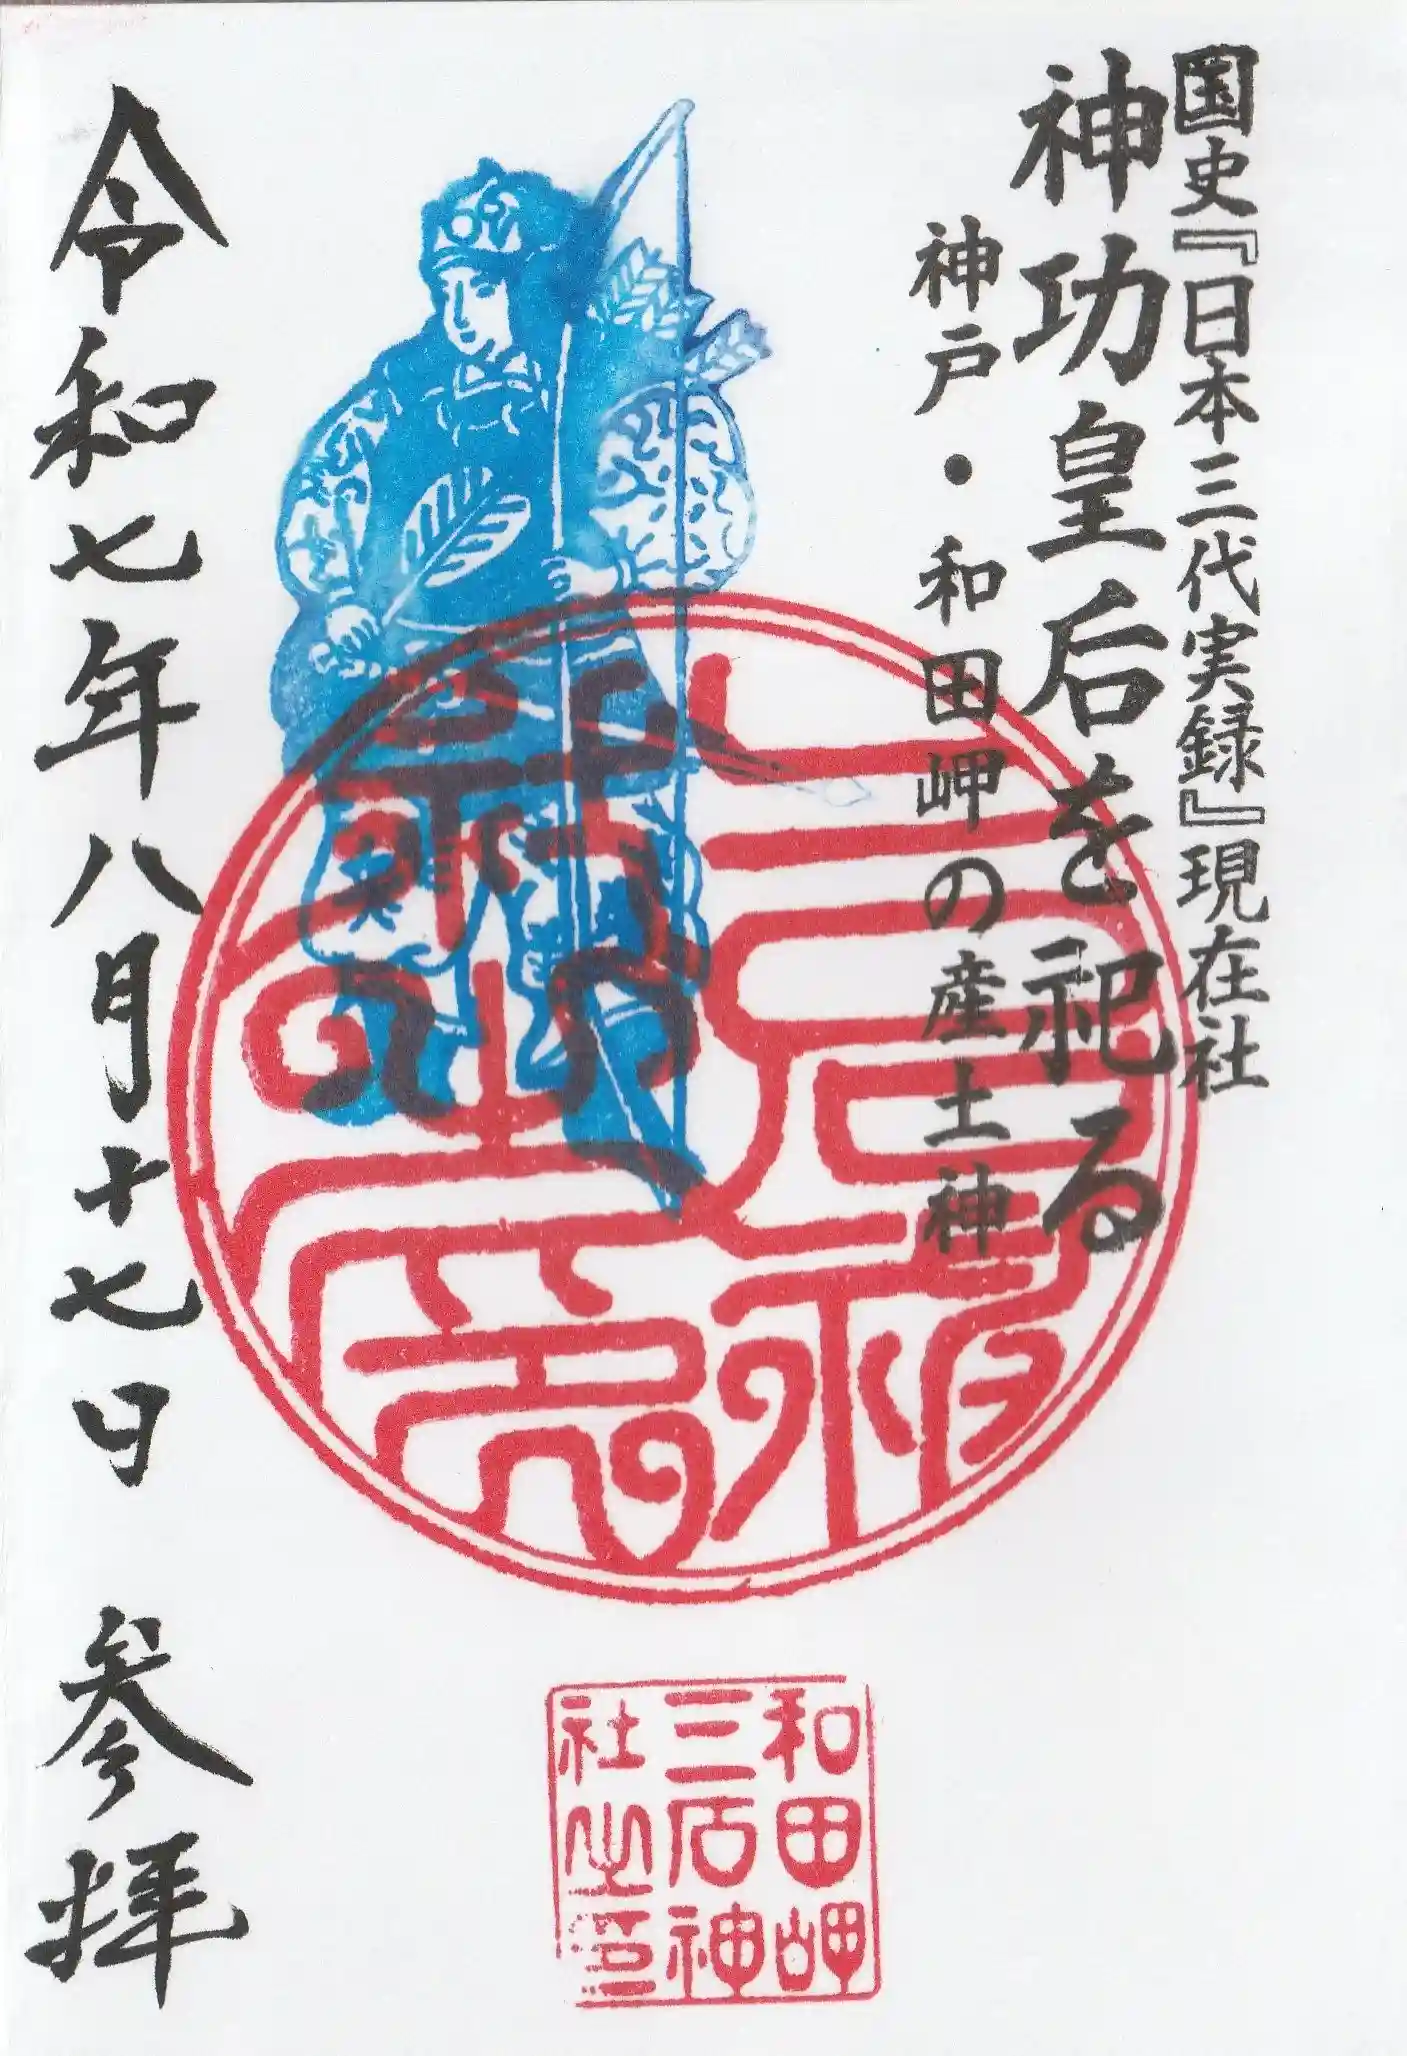 国史『日本三代実録』現在社
神功皇后を祀る
神戸・和田岬の産土神
令和七年八月十七日 参拝
和田岬
三石神
社之印